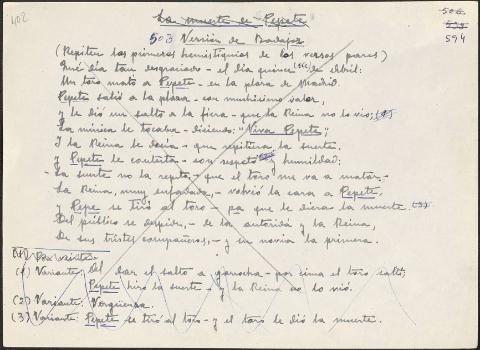 402
La muerte de Pepete
503 Versión de Badajoz
506
594
(Repiten los primeros hemistiquios de los versos pares)
Qué día tan desgraciado – el día quince (sic) de Abril:
Un toro mató a Pepete – en la plaza de Madrid.
Pepete salió a la plaza – con muchísimo valor,
y le dió un salto a la fiera – que la Reina no lo vió;
La música le tocaba – diciendo: Viva Pepete;
Y la Reina le decía – que repitiera la suerte.
Y Pepete le contesta – con respeto y humildad:
– La suerte no la repito – que el toro me va a matar –
La Reina, muy enfadada, – volvió la cara a Pepete,
y Pepe se tiró al toro – pa que le diera la muerte
Del público se despide, – de la autoridá y la Reina,
De sus tristes compañeros, – y su novia la primera.
(1) Variante: Del dar el salto a garrocha – por cima el toro saltó;
Pepete hizo la suerte – y la Reina no lo vió.
(2) Variante: Vergüenza.
(3) Variante: Pepete se tiró al toro – y el toro le dió la muerte.